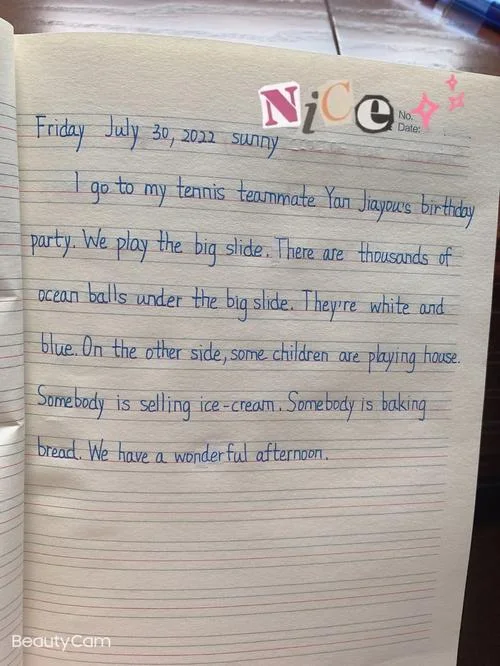 NiCe
No.
Date:
Friday July 30, 2022 sunny
I go to my tennis teammate Yan Jiayou's birthday
party. We play the big slide. There are thousands of
ocean balls under the big slide. They're white and
blue. On the other side, some children are playing house.
Somebody is selling ice-cream. Somebody is baking
bread. We have a wonderful afternoon.
BeautyCam